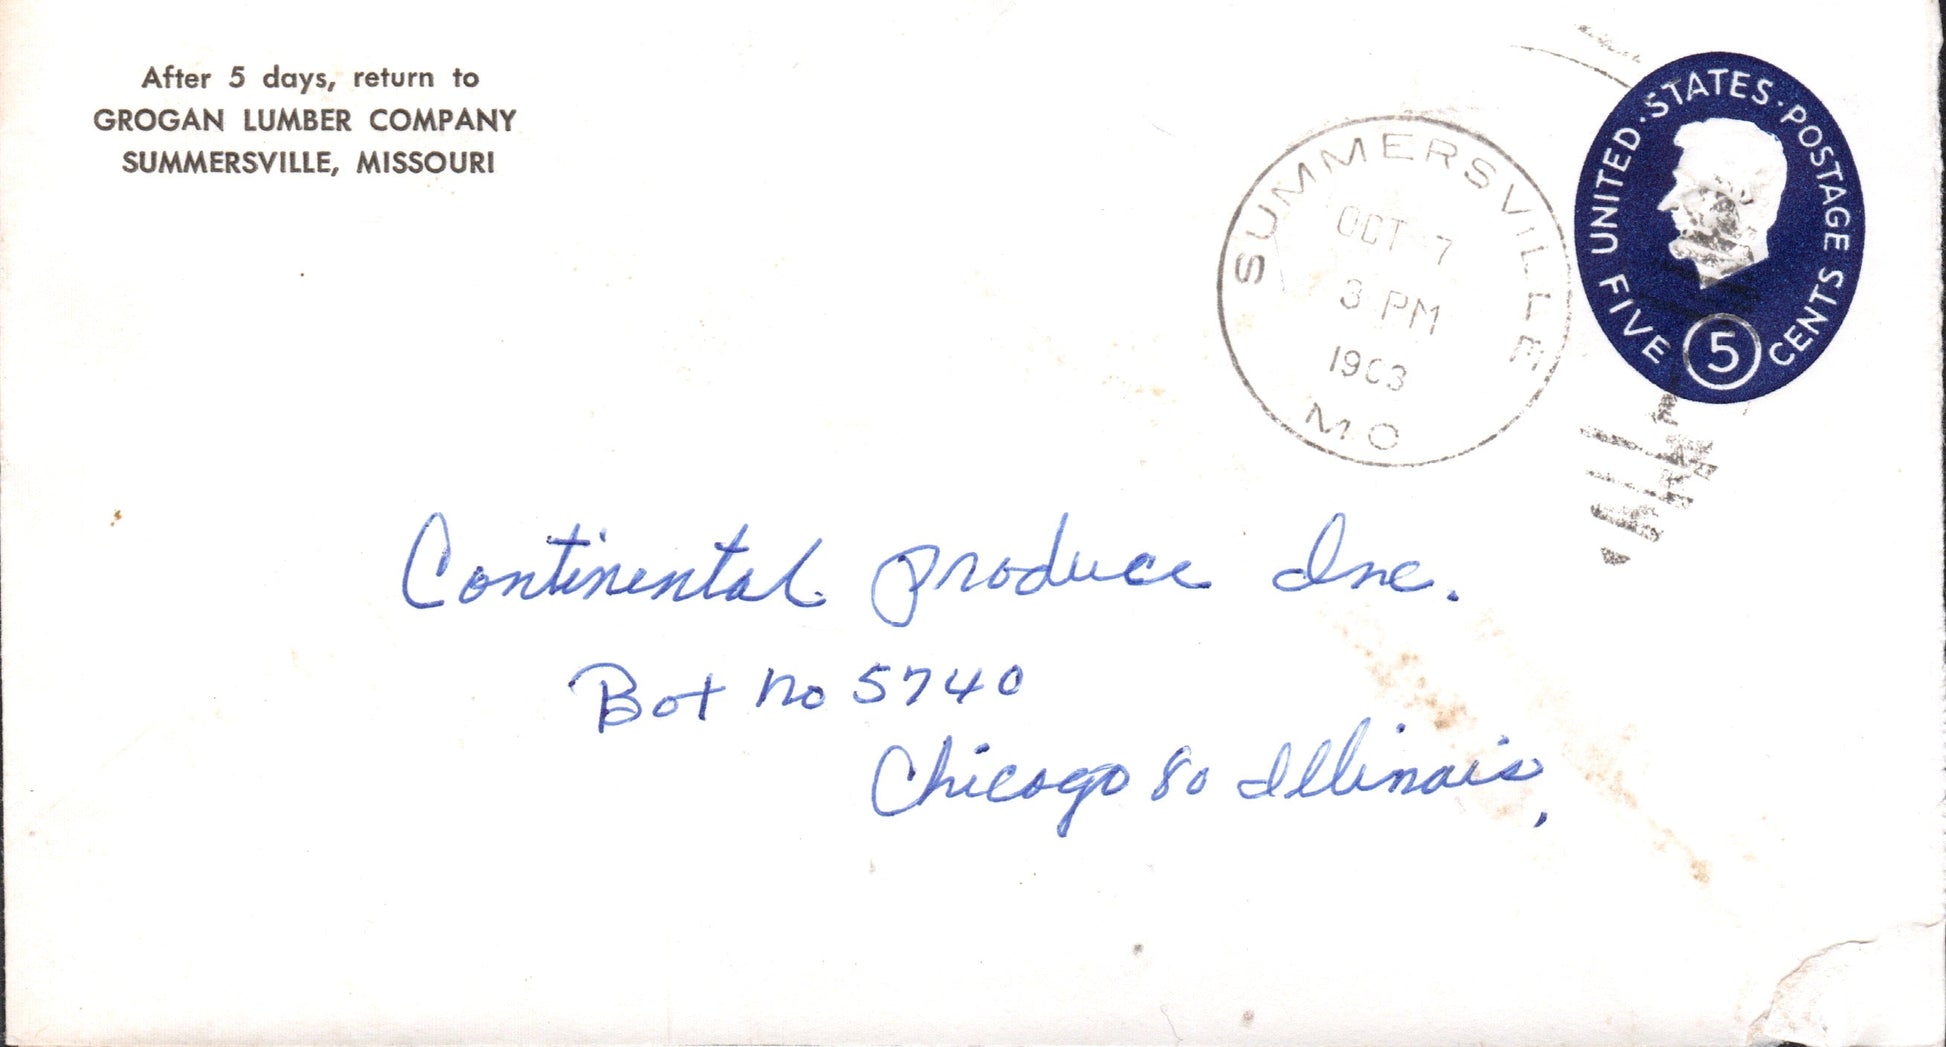 After 5 days, return to
GROGAN LUMBER COMPANY
SUMMERSVILLE, MISSOURI
SUMMERSVILLE
OCT 7
3 PM
1963
MO
UNITED·STATES·POSTAGE
FIVE 5 CENTS
Continental Produce Inc.
Box No 5740
Chicago 80 Illinois,